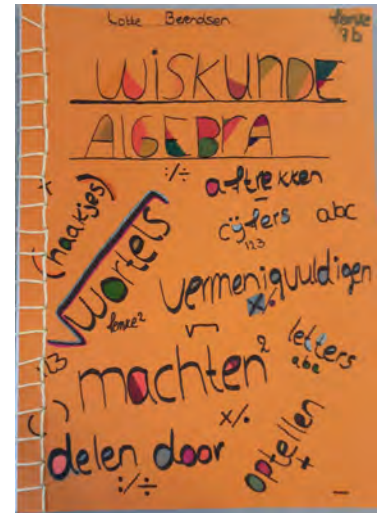 Lotte Beerdsen
7b
WISKUNDE
ALGEBRA
:/÷
aftrekken
–
(haakjes)
cijfers
123
abc
√wortels
vermenigvuldigen
x/·
letters
abc
123
machten²
( )
x/·
delen door
:/÷
optellen
+
–